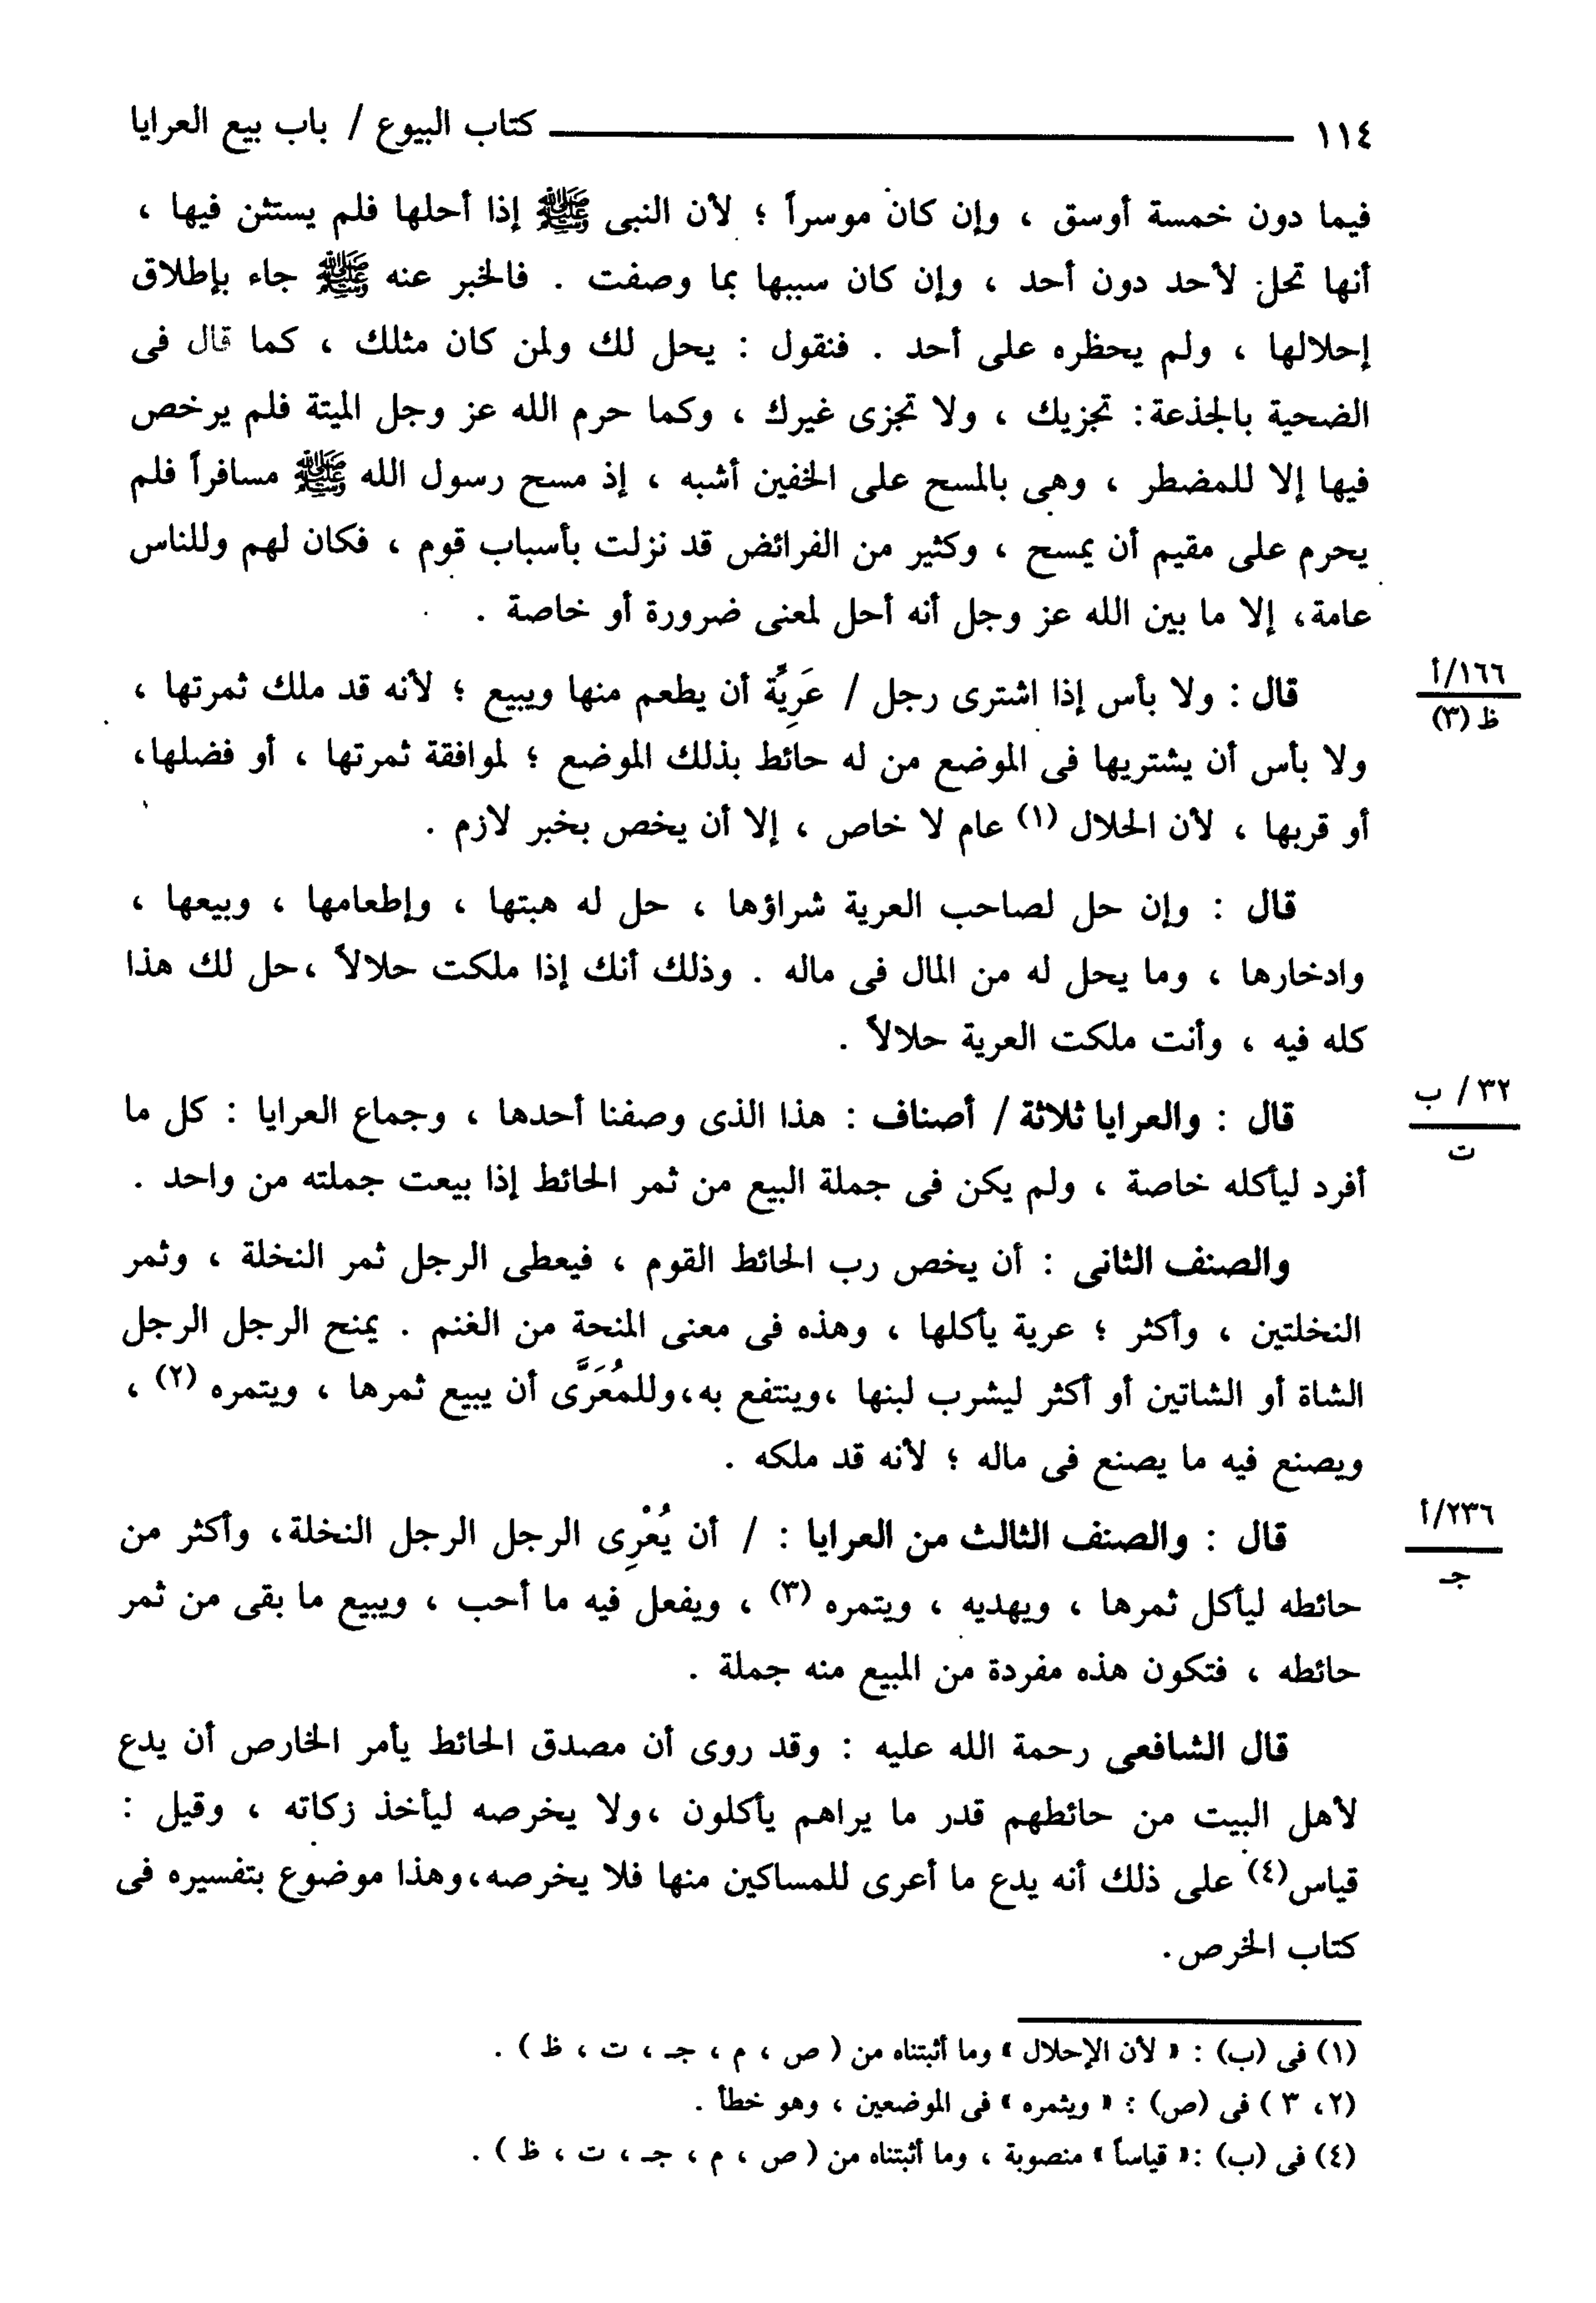 ١١٤ كتاب البيوع / باب بيع العرايا
فيما دون خمسة أوسق ، وإن كان موسراً ؛ لأن النبى ﷺ إذا أحلها فلم يستثن فيها ،
أنها تحل لأحد دون أحد ، وإن كان سببها بما وصفت . فالخبر عنه ﷺ جاء بإطلاق
إحلالها ، ولم يحظره على أحد . فنقول : يحل لك ولمن كان مثلك ، كما قال فى
الضحية بالجذعة: تجزيك ، ولا تجزى غيرك ، وكما حرم الله عز وجل الميتة فلم يرخص
فيها إلا للمضطر ، وهى بالمسح على الخفين أشبه ، إذ مسح رسول الله ﷺ مسافراً فلم
يحرم على مقيم أن يمسح ، وكثير من الفرائض قد نزلت بأسباب قوم ، فكان لهم وللناس
عامة، إلا ما بين الله عز وجل أنه أحل لمعنى ضرورة أو خاصة .
١٦٦/أ
ظ (٣)
قال : ولا بأس إذا اشترى رجل / عَرِيَّة أن يطعم منها ويبيع ؛ لأنه قد ملك ثمرتها ،
ولا بأس أن يشتريها فى الموضع من له حائط بذلك الموضع ؛ لموافقة ثمرتها ، أو فضلها،
أو قربها ، لأن الحلال (١) عام لا خاص ، إلا أن يخص بخبر لازم .
قال : وإن حل لصاحب العرية شراؤها ، حل له هبتها ، وإطعامها ، وبيعها ،
وادخارها ، وما يحل له من المال فى ماله . وذلك أنك إذا ملكت حلالاً ،حل لك هذا
كله فيه ، وأنت ملكت العرية حلالاً .
٣٢/ ب
ت
قال : والعرايا ثلاثة / أصناف : هذا الذى وصفنا أحدها ، وجماع العرايا : كل ما
أفرد ليأكله خاصة ، ولم يكن فى جملة البيع من ثمر الحائط إذا بيعت جملته من واحد .
والصنف الثانى : أن يخص رب الحائط القوم ، فيعطى الرجل ثمر النخلة ، وثمر
النخلتين ، وأكثر ؛ عرية يأكلها ، وهذه فى معنى المنحة من الغنم . يمنح الرجل الرجل
الشاة أو الشاتين أو أكثر ليشرب لبنها ،وينتفع به،وللمُعَرَّى أن يبيع ثمرها ، ويتمره (٢) ،
ويصنع فيه ما يصنع فى ماله ؛ لأنه قد ملكه .
٢٣٦/أ
جـ
قال : والصنف الثالث من العرايا : / أن يُعْرِى الرجل الرجل النخلة، وأكثر من
حائطه ليأكل ثمرها ، ويهديه ، ويتمره (٣) ، ويفعل فيه ما أحب ، ويبيع ما بقى من ثمر
حائطه ، فتكون هذه مفردة من المبيع منه جملة .
قال الشافعى رحمة الله عليه : وقد روى أن مصدق الحائط يأمر الخارص أن يدع
لأهل البيت من حائطهم قدر ما يراهم يأكلون ،ولا يخرصه ليأخذ زكاته ، وقيل :
قياس(٤) على ذلك أنه يدع ما أعرى للمساكين منها فلا يخرصه،وهذا موضوع بتفسيره فى
كتاب الخرص.
(١) فى (ب) : « لأن الإحلال » وما أثبتناه من ( ص ، م ، جـ ، ت ، ظ ) .
(٢، ٣ ) فى (ص) : « ويثمره » فى الموضعين ، وهو خطأ .
(٤) فى (ب) :« قياساً » منصوبة ، وما أثبتناه من ( ص ، م ، جـ ، ت ، ظ ) .